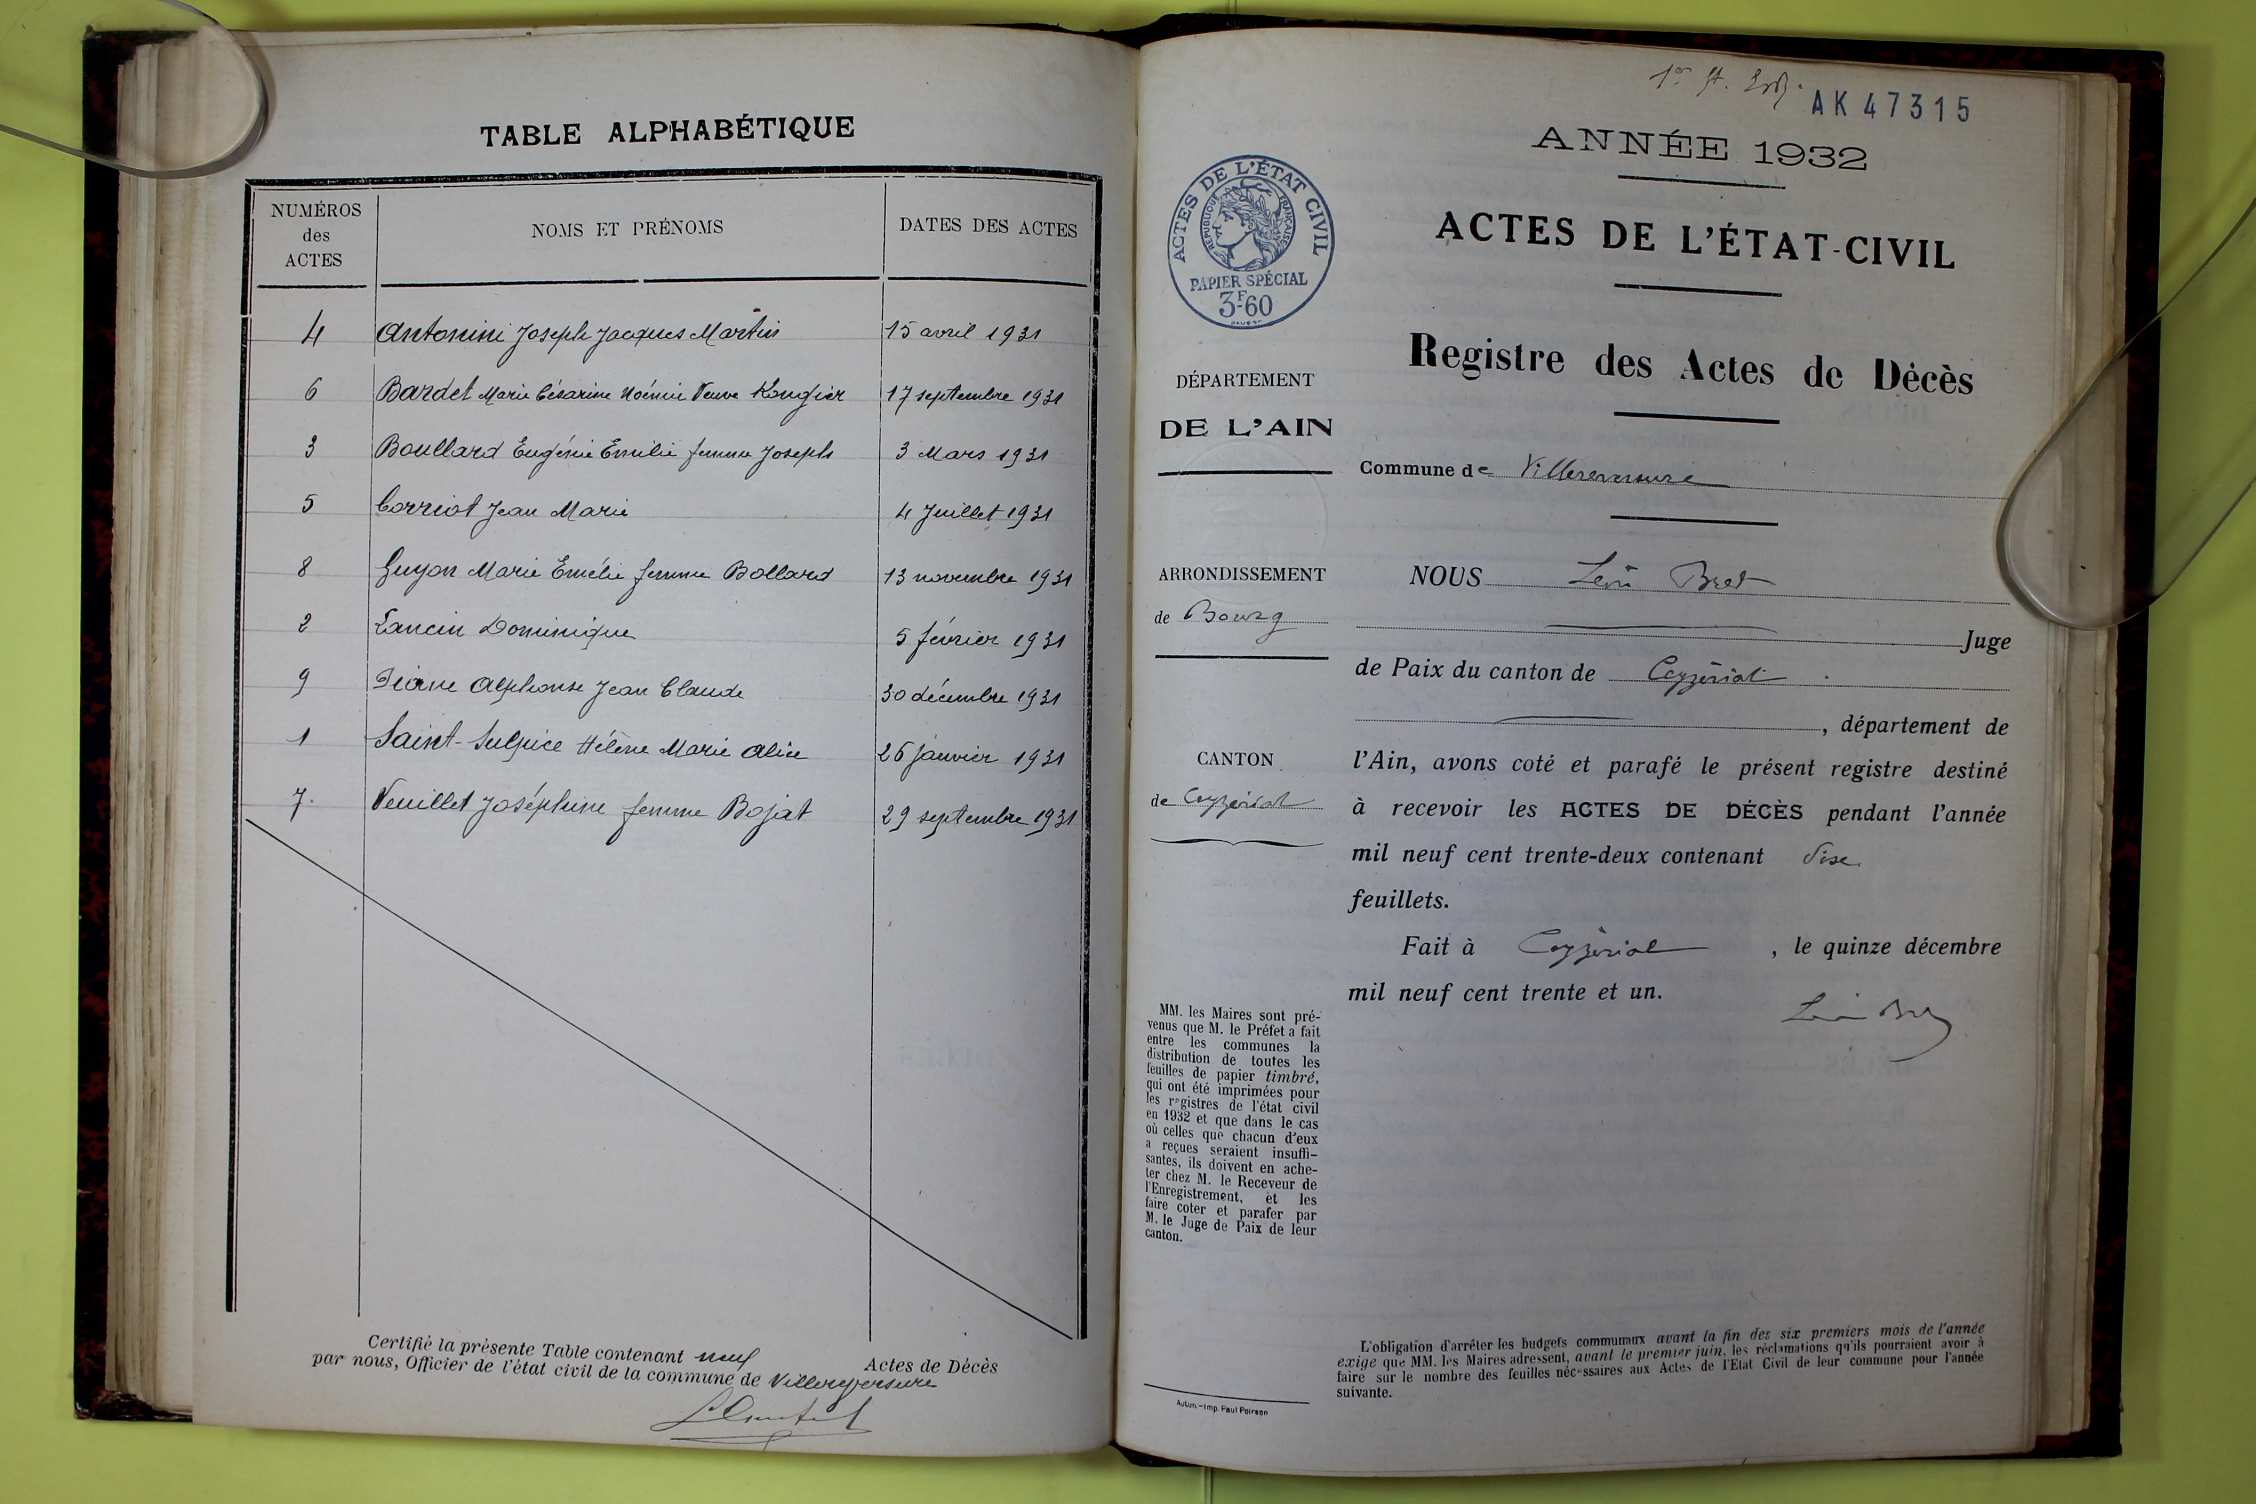 TABLE ALPHABÉTIQUE
NUMÉROS
des
ACTES
NOMS ET PRÉNOMS
DATES DES ACTES
4 Antonini Joseph Jacques Martin 15 avril 1931
6 Bardet Marie Césarine Noémie Veuve Rougier 17 septembre 1931
3 Boullard Eugénie Emilie femme Joseph 3 Mars 1931
5 Corriot Jean Marie 4 Juillet 1931
8 Guyon Marie Emélie femme Bollard 13 novembre 1931
2 Lancin Dominique 5 février 1931
9 Alphonse Jean Claude 30 décembre 1931
1 Saint-Sulpice Hélène Marie Alice 26 janvier 1931
7. Veuillet Joséphine femme Bojat 29 septembre 1931
Certifié la présente Table contenant neuf Actes de Décès
par nous, Officier de l'état civil de la commune de Villereversure
1er
AK 47315
ANNÉE 1932
ACTES DE L'ÉTAT-CIVIL
Registre des Actes de Décès
Commune de Villereversure
NOUS Léon Bret
Juge
de Paix du canton de Ceyzériat
, département de
l'Ain, avons coté et parafé le présent registre destiné
à recevoir les ACTES DE DÉCÈS pendant l'année
mil neuf cent trente-deux contenant
feuillets.
Fait à Ceyzériat , le quinze décembre
mil neuf cent trente et un.
Léon Bret
ACTES DE L'ÉTAT CIVIL
RÉPUBLIQUE FRANÇAISE
PAPIER SPÉCIAL
3F60
DÉPARTEMENT
DE L'AIN
ARRONDISSEMENT
de Bourg
CANTON
de Ceyzériat
MM. les Maires sont pré-
venus que M. le Préfet a fait
entre les communes la
distribution de toutes les
feuilles de papier timbré,
qui ont été imprimées pour
les registres de l'état civil
en 1932 et que dans le cas
où celles que chacun d'eux
a reçues seraient insuffi-
santes, ils doivent en ache-
ter chez M. le Receveur de
l'Enregistrement, et les
faire coter et parafer par
M. le Juge de Paix de leur
canton.
Autun.-Imp. Paul Poirson
L'obligation d'arrêter les budgets communaux avant la fin des six premiers mois de l'année
exige que MM. les Maires adressent, avant le premier juin, les réclamations qu'ils pourraient avoir à
faire sur le nombre des feuilles nécessaires aux Actes de l'Etat Civil de leur commune pour l'année
suivante.